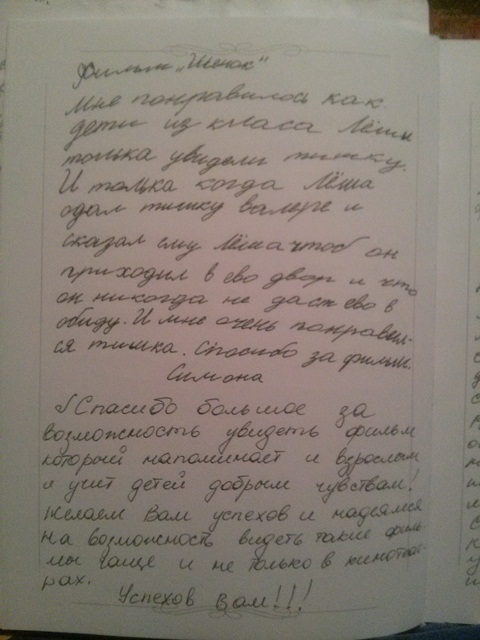 Фильм „Щенок"
Мне понравилось как
дети из класа Лёши
толька увидели тишку.
И толька когда Лёша
одал тишку валере и
сказал ему Лёша чтоб он
приходил в ево двор и что
он никогда не даст ево в
обиду. И мне очень понравил-
ся тишка. Спосибо за фильм.
Симона
Спасибо большое за
возможность увидеть фильм
который напоминает и взрослым
и учит детей добрым чувствам!
Желаем Вам успехов и надеемся
на возможность видеть такие филь-
мы чаще и не только в кинотеат-
рах.
Успехов Вам!!!